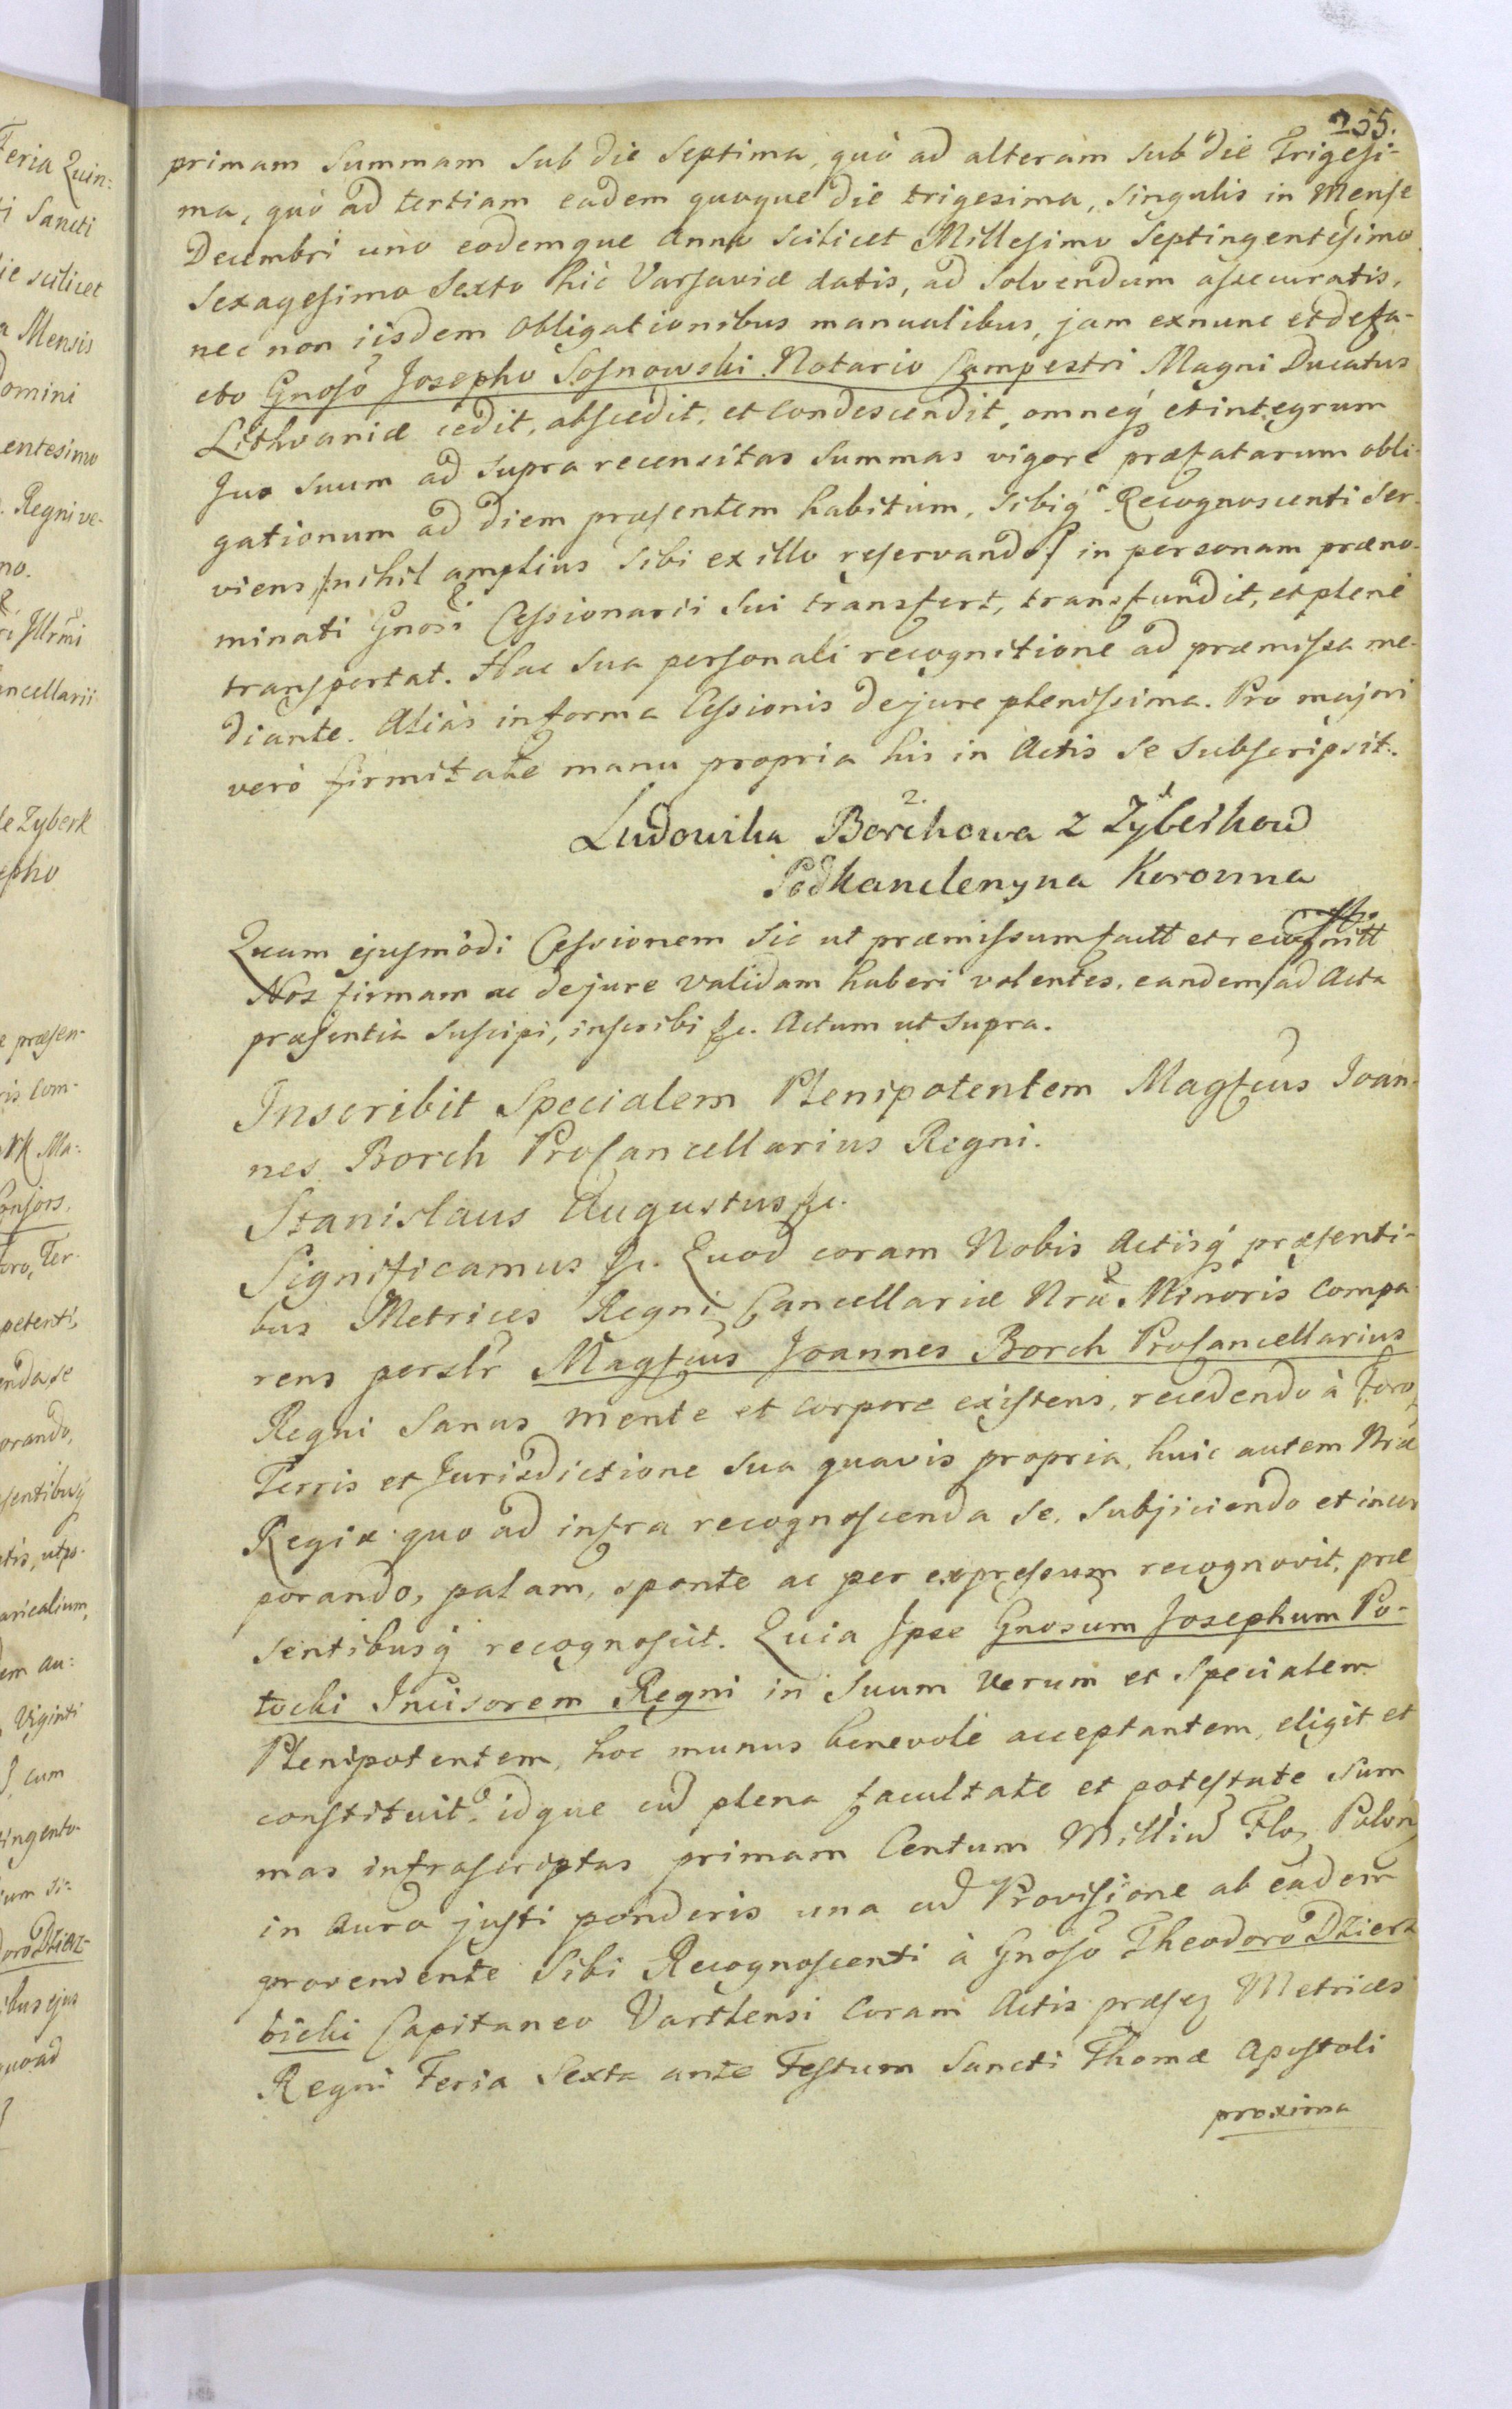 255.
primam Summam sub die Septima, quò ad alteram sub die Trigesi-
ma, quò ad tertiam eadem quoque die trigesima, singulis in Mense
Decembri uno eodemque Anno scilicet Millesimo Septingentesimo
Sexagesimo Sexto hic Varsaviæ datis, ad solvendum assecuratis,
nec non iisdem obligationibus manualibus, jam exnunc et de fa-
cto Gnoso Josepho Sosnowski Notario Campestri Magni Ducatus
Lithvaniæ cedit, abscedit, et condescendit, omneq et integrum
Jus suum ad supra recensitas Summas vigore præfatarum obli-
gationum ad diem præsentem habitum, sibiq Recognoscenti ser-
viens, nihil amplius sibi ex illo reservando in personam præno-
minati Gnosi Cessionarii sui transfert, transfundit, et plene
transportat. Hac sua personali recognitione ad præmissa me-
diante. Alias in forma Cessionis de jure plenissima. Pro majori
verò firmitate manu propria his in Actis se subscripsit.
Ludowika Borchowa z Zyberkow
2.
Podkanclerzyna Koronna
Quam ejusmodi Cessionem sic ut præmissum factt et recognitt
Nos firmam ac de jure validam haberi volentes, eandem ad Acta
præsentia suscipi, inscribi &c. Actum ut supra.
Inscribit Specialem Plenipotentem Magfcus Joan-
nes Borch ProCancellarius Regni.
Stanislaus Augustus &c.
Significamus &c. Quod coram Nobis Actisq præsenti-
bus Metrices Regni Cancellariæ Nræ Minoris compa-
rens persLr Magfcus Joannes Borch ProCancellarius
Regni Sanus mente et corpore existens, recedendo à Foro,
Terris et Jurisdictione sua quavis propria, huic autem Nræ
Regiæ quo ad infra recognoscenda se subjiciendo et incor
porando, palam, sponte ac per expressum recognovit, præ
sentibusq recognoscit. Quia Ipse Gnosum Josephum Po-
tocki Incisorem Regni in suum verum et specialem
Plenipotentem, hoc munus benevolè acceptantem, eligit et
constituit, idque cu plena facultate et potestate Sum
mas infrascriptas primam Centum Milliu Flo Polon
in auro justi ponderis una cu Provisione ab eadem
proveniente sibi Recognoscenti à Gnoso Theodoro Dzierz
bicki Capitaneo Vartensi Coram Actis præsez Metrices
Regni Feria Sexta ante Festum Sancti Thomæ Apostoli
proxima